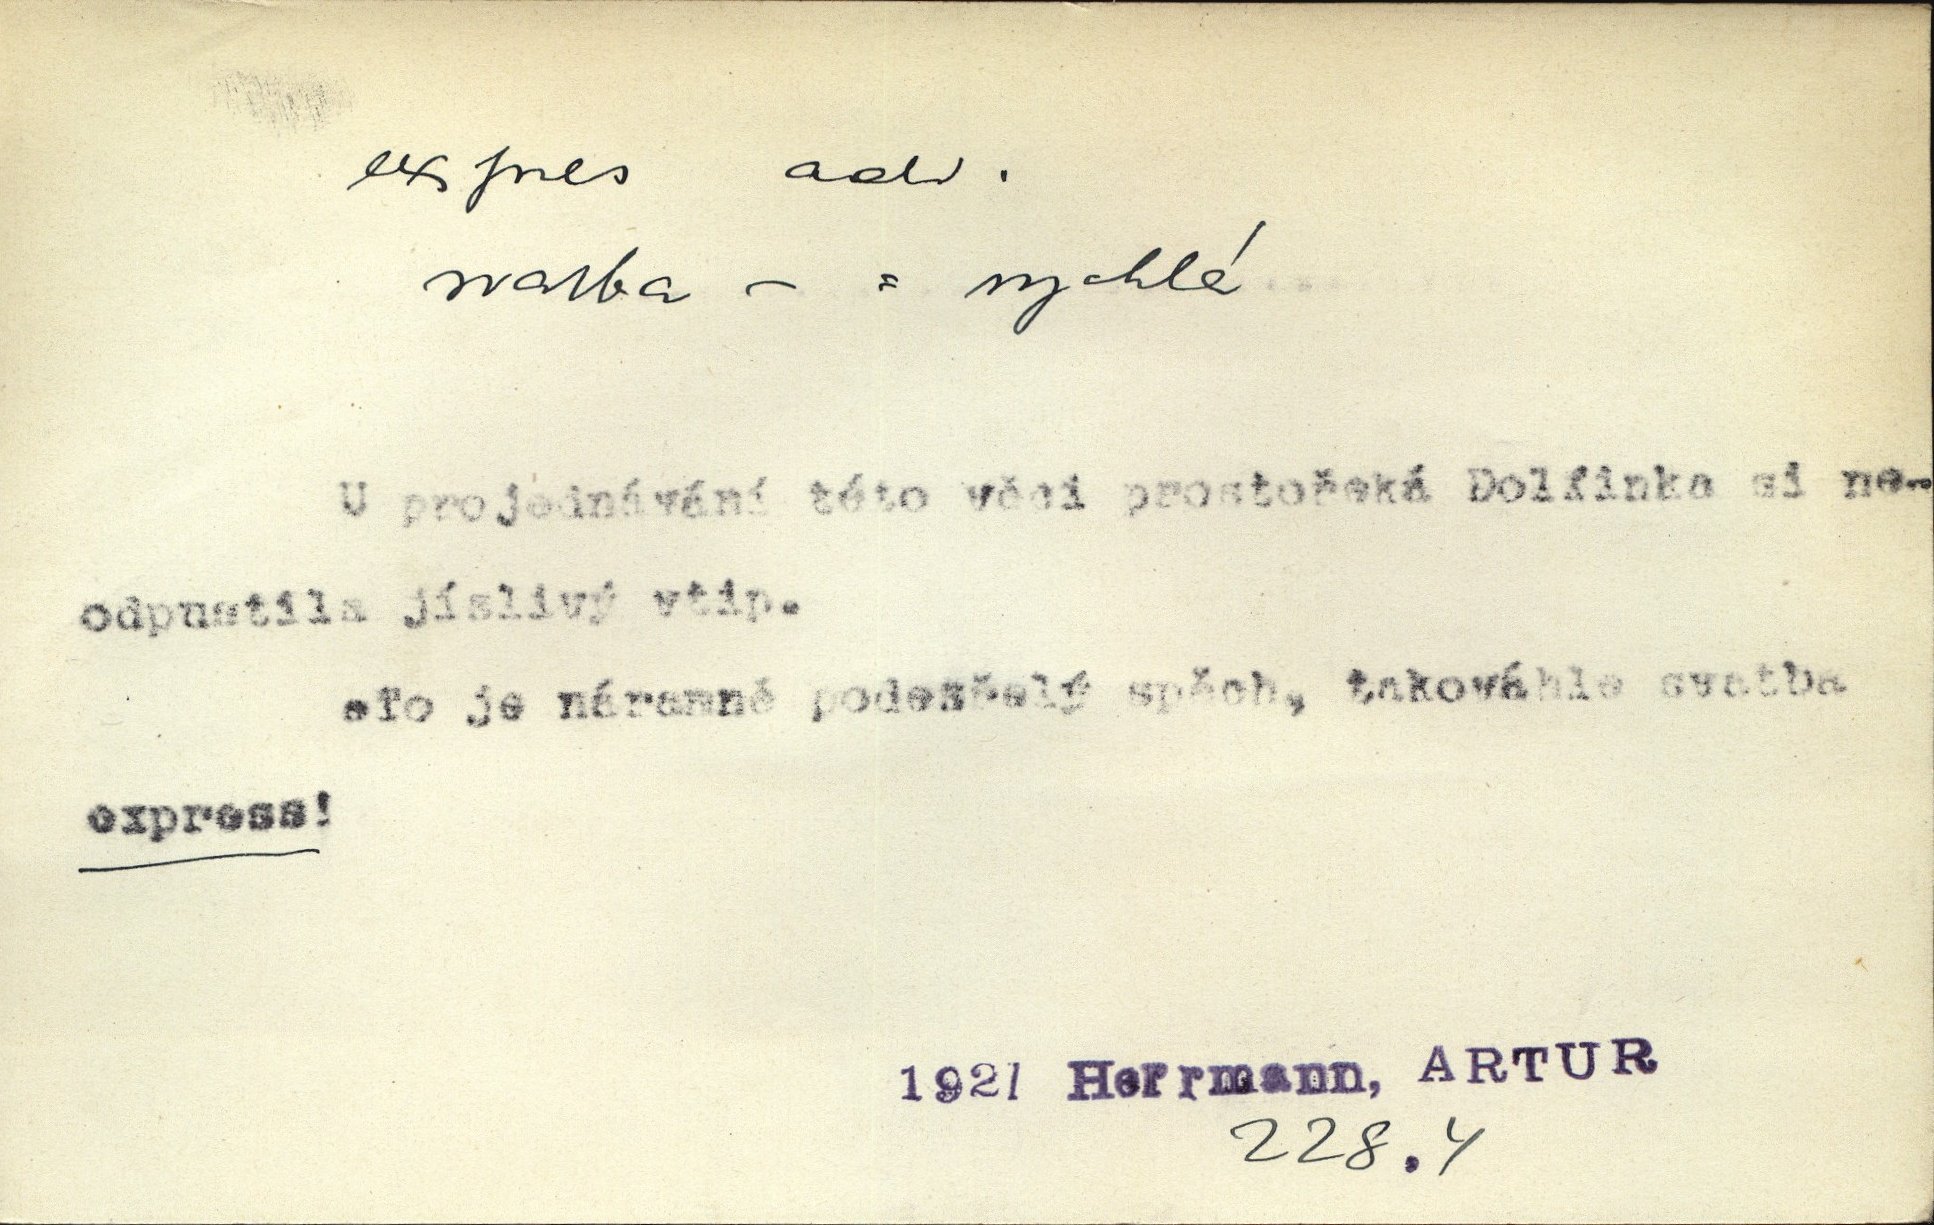 expres adv.
svatba - = rychlá
U projednávání této věci prostořeká Dolfinka si ne-
odpustila jíslivý vtip.
"To je náramně podezřelý spěch, takováhle svatba
express!
1921 Herrmann, ARTUR
228.4